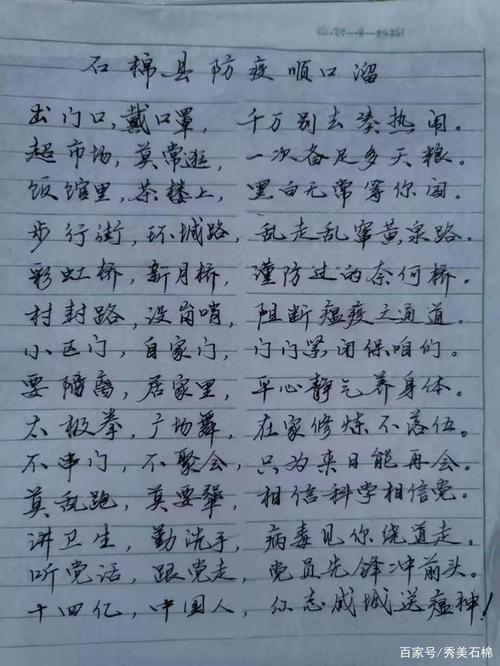 石棉县防疫顺口溜
出门口,戴口罩, 千万别去凑热闹。
超市场,莫常逛, 一次备足多天粮。
饭馆里,茶楼上, 黑白无常等你闯。
步行街,环城路, 乱走乱窜黄泉路。
彩虹桥,新月桥, 谨防过的奈何桥。
村封路,没岗哨, 阻断瘟疫之通道。
小区门,自家门, 门门紧闭保咱们。
要隔离,居家里, 平心静气养身体。
太极拳,广场舞, 在家修炼不落伍。
不串门,不聚会, 只为来日能再会。
莫乱跑,莫要犟, 相信科学相信党。
讲卫生,勤洗手, 病毒见你绕道走。
听党话,跟党走, 党员先锋冲前头。
十四亿,中国人, 众志成城送瘟神!
百家号/秀美石棉